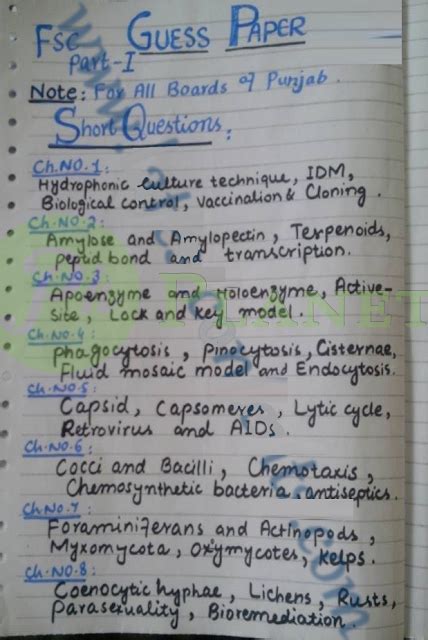 FSc GUESS PAPER
Part-I
Note: For All Boards of Punjab.
Short Questions:
Ch.NO.1:
Hydrophonic culture technique, IDM,
Biological control, Vaccination & Cloning.
Ch.NO.2:
Amylose and Amylopectin, Terpenoids,
Peptid bond and transcription.
Ch.NO.3:
Apoenzyme and Holoenzyme, Active-
Site, Lock and key model.
Ch.NO.4:
Phagocytosis, Pinocytosis, Cisternae,
Fluid mosaic model and Endocytosis.
Ch.NO.5:
Capsid, Capsomeres, Lytic cycle,
Retrovirus and AIDs.
Ch.NO.6:
Cocci and Bacilli, Chemotaxis,
Chemosynthetic bacteria, antiseptics.
Ch.NO.7:
Foraminiferans and Actinopods,
Myxomycota, Oxymycotes, Kelps.
Ch.NO.8:
Coenocytic hyphae, Lichens, Rusts,
Parasexuality, Bioremediation.
PLANET